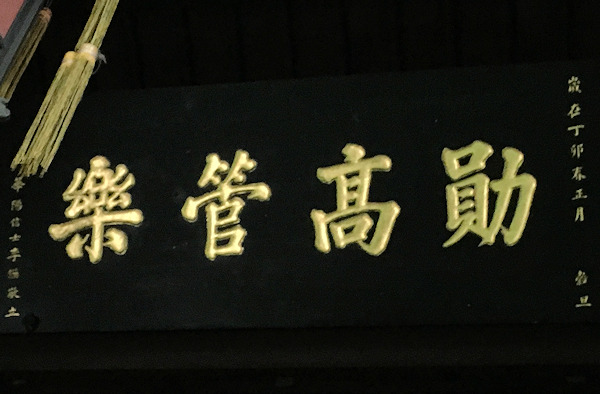 歲在丁卯春正月 穀旦
勛高管樂
華陽信士李 敬立